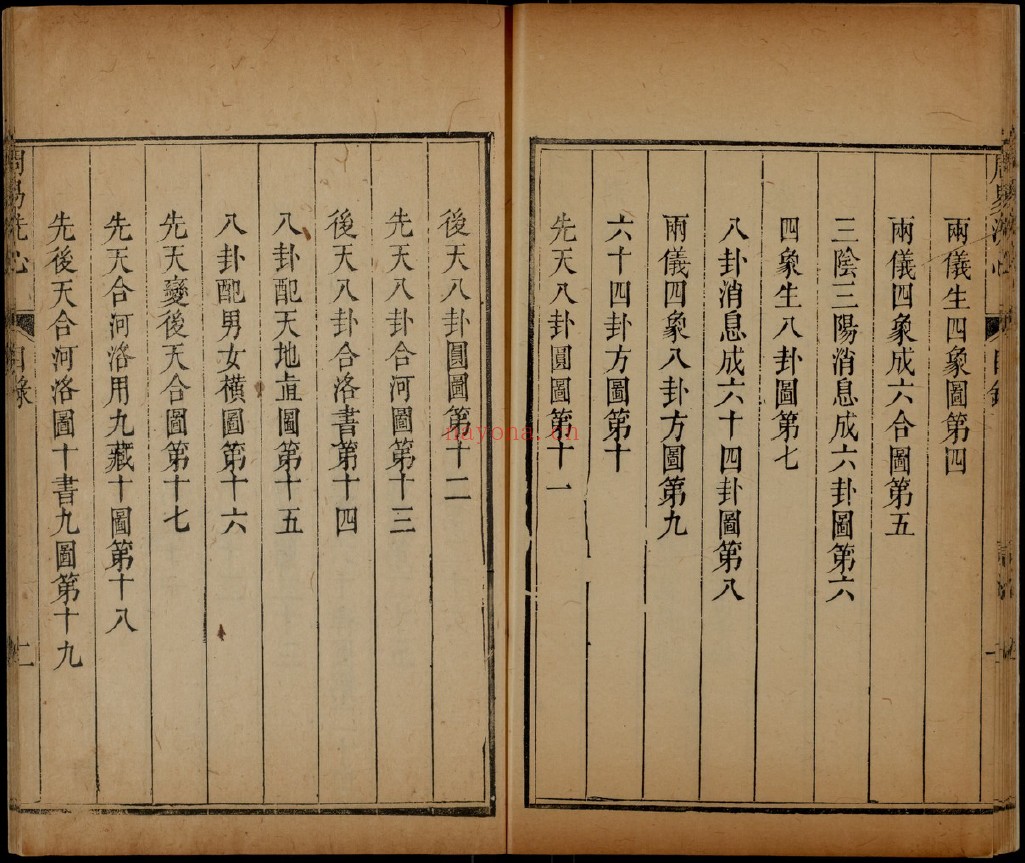 周易洗心
目錄
兩儀生四象圖第四
兩儀四象成六合圖第五
三陰三陽消息成六卦圖第六
四象生八卦圖第七
八卦消息成六十四卦圖第八
兩儀四象八卦方圖第九
六十四卦方圖第十
先天八卦圓圖第十一
後天八卦圓圖第十二
先天八卦合河圖第十三
後天八卦合洛書第十四
八卦配天地直圖第十五
八卦配男女橫圖第十六
先天變後天合圖第十七
先天合河洛用九藏十圖第十八
先後天合河洛圖十書九圖第十九
周易洗心
目錄
二
nayona.cn